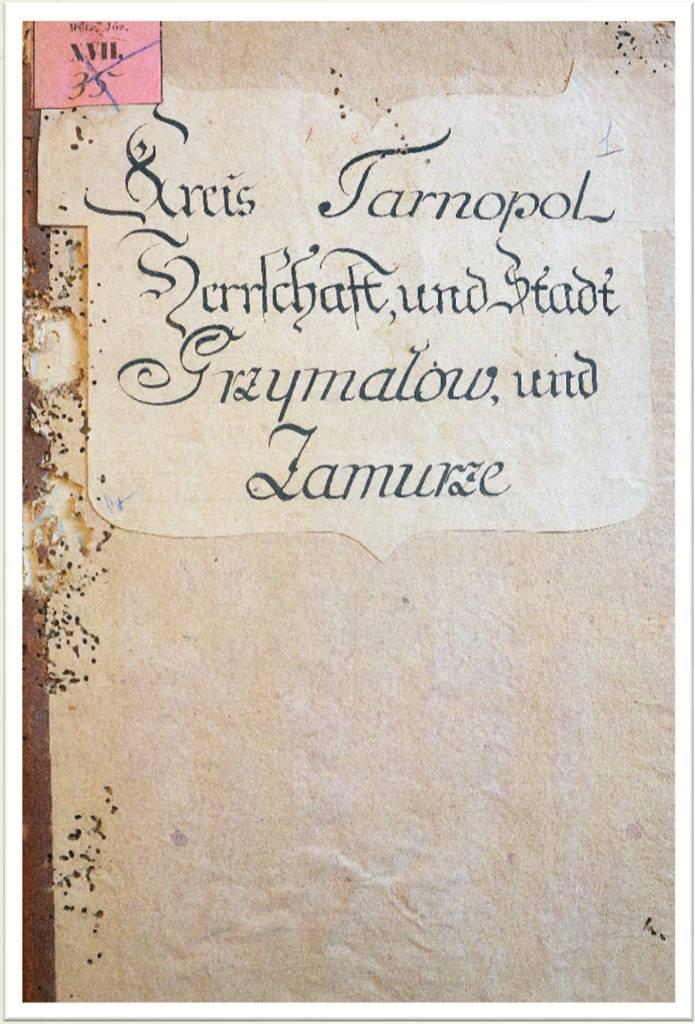 Metr. Józ.
XVII.
35
1
Kreis Tarnopol
Herrschaft, und Stadt
Grzymalów, und
Zamurze